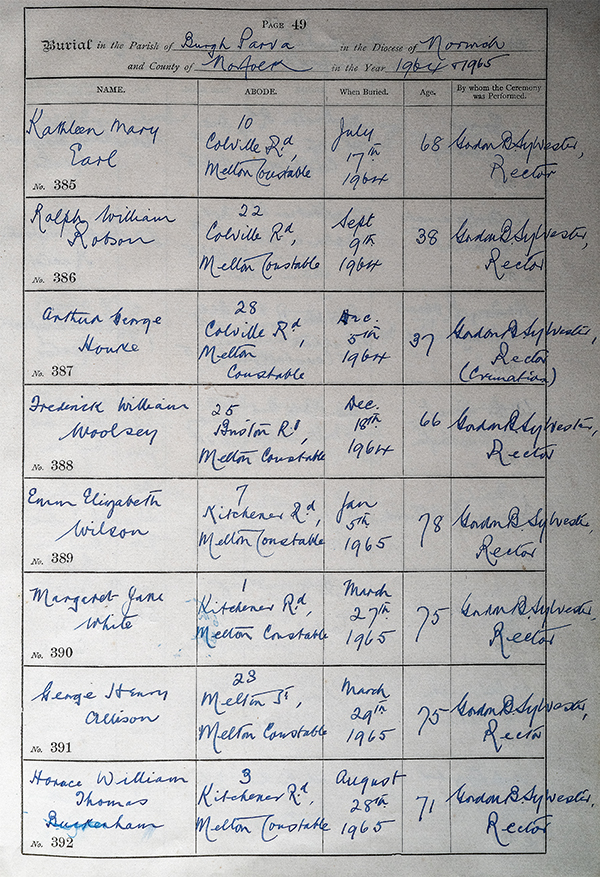 PAGE 49
Burial in the Parish of Burgh Parva in the Diocese of Norwich
and County of Norfolk in the Year 1964 & 1965
NAME. ABODE. When Buried. Age. By whom the Ceremony was Performed.
Kathleen Mary
Earl
No. 385
10
Colville Rd,
Melton Constable
July
17th
1964
68
Gordon B. Sylvester,
Rector
Ralph William
Robson
No. 386
22
Colville Rd,
Melton Constable
Sept
9th
1964
38
Gordon B. Sylvester,
Rector
Arthur George
No. 387
28
Colville Rd,
Melton
Constable
Dec.
5th
1964
37
Gordon B. Sylvester,
Rector
(Cremation)
Frederick William
Woolsey
No. 388
25
Briston Rd,
Melton Constable
Dec.
18th
1964
66
Gordon B. Sylvester,
Rector
Emma Elizabeth
Wilson
No. 389
7
Kitchener Rd,
Melton Constable
Jan
5th
1965
78
Gordon B. Sylvester,
Rector
Margaret Jane
White
No. 390
1
Kitchener Rd,
Melton Constable
March
27th
1965
75
Gordon B. Sylvester,
Rector
George Henry
Allison
No. 391
23
Melton St,
Melton Constable
March
29th
1965
75
Gordon B. Sylvester,
Rector
Horace William
Thomas
Buckenham
No. 392
3
Kitchener Rd,
Melton Constable
August
28th
1965
71
Gordon B. Sylvester,
Rector